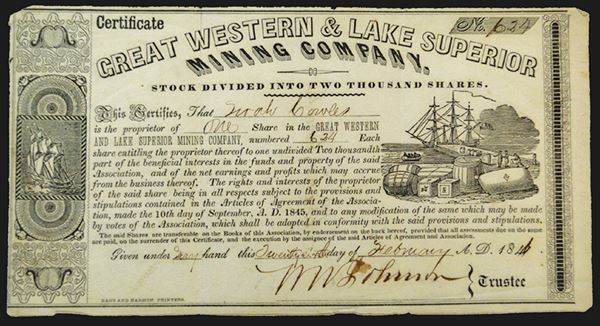 Certificate
No. 624
GREAT WESTERN & LAKE SUPERIOR
MINING COMPANY.
STOCK DIVIDED INTO TWO THOUSAND SHARES.
This Certifies, That Noah Cowles
is the proprietor of One Share in the GREAT WESTERN
AND LAKE SUPERIOR MINING COMPANY, numbered 624 Each
share entitling the proprietor thereof to one undivided Two thousandth
part of the beneficial interests in the funds and property of the said
Association, and of the net earnings and profits which may accrue
from the business thereof. The rights and interests of the proprietor
of the said share being in all respects subject to the provisions and
stipulations contained in the Articles of Agreement of the Associa-
tion, made the 10th day of September, A. D. 1845, and to any modification of the same which may be made
by votes of the Association, which shall be adopted in conformity with the said provisions and stipulations.
The said Shares are transferable on the Books of this Association, by endorsement on the back hereof, provided that all assessments due on the same
are paid, on the surrender of this Certificate, and the execution by the assignee of the said Articles of Agreement and Association.
Given under my hand this day of February A. D. 1846
Johnson Trustee
HARMON, PRINTERS.